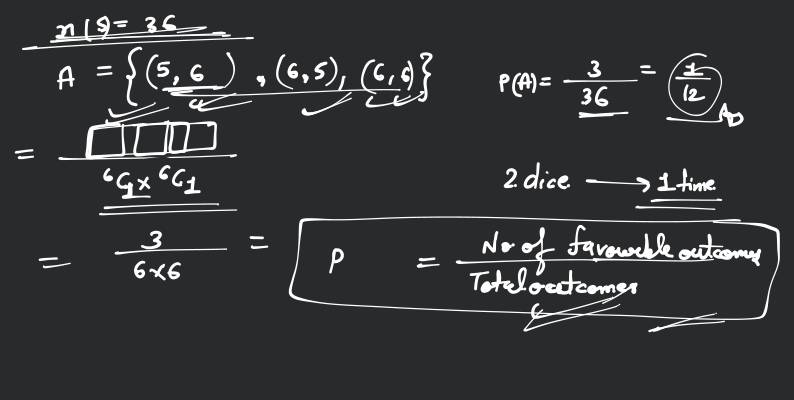 n(S) = 36
A = {(5, 6), (6,5), (6,6)}
P(A) = 3/36 = 1/12
= ⁶C₁ × ⁶C₁
2 dice → 1 time
= 3/6×6 =
P = No of favourable outcomes
Total outcomes